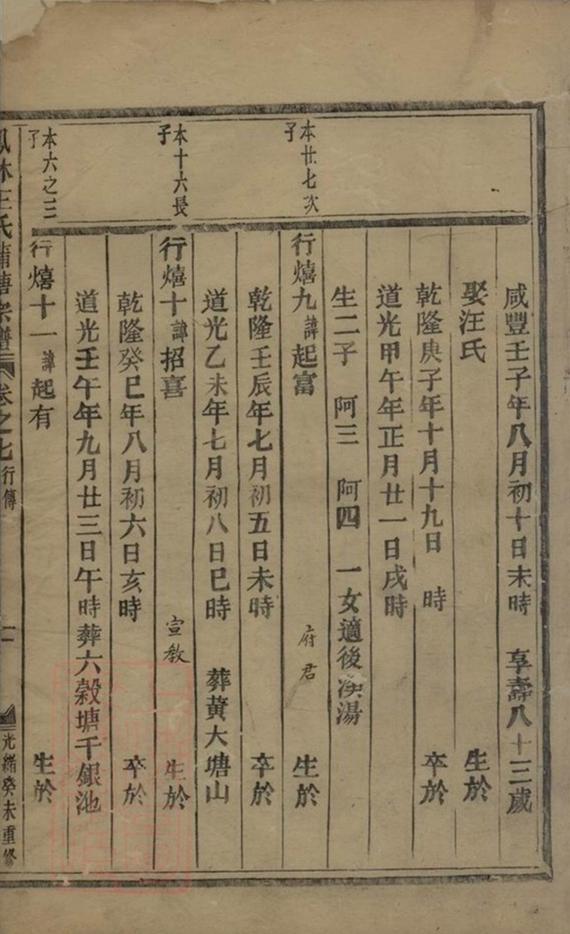 咸豐壬子年八月初十日未時 享壽八十三歲
娶汪氏 生於
乾隆庚子年十月十九日 時 卒於
道光甲午年正月廿一日戌時
生二子 阿三 阿四 一女適後 湯
本廿七次子
行熺九諱起富 府君 生於
乾隆壬辰年七月初五日未時 卒於
道光乙未年七月初八日巳時 葬黃大塘山
本十六長子
行熺十諱招喜 宣教 生於
乾隆癸巳年八月初六日亥時 卒於
道光壬午年九月廿三日午時葬六穀塘千銀池
本六之三子
行熺十一諱起有 生於
林王氏蒲塘宗譜 卷之七行傳 光緒癸未重修